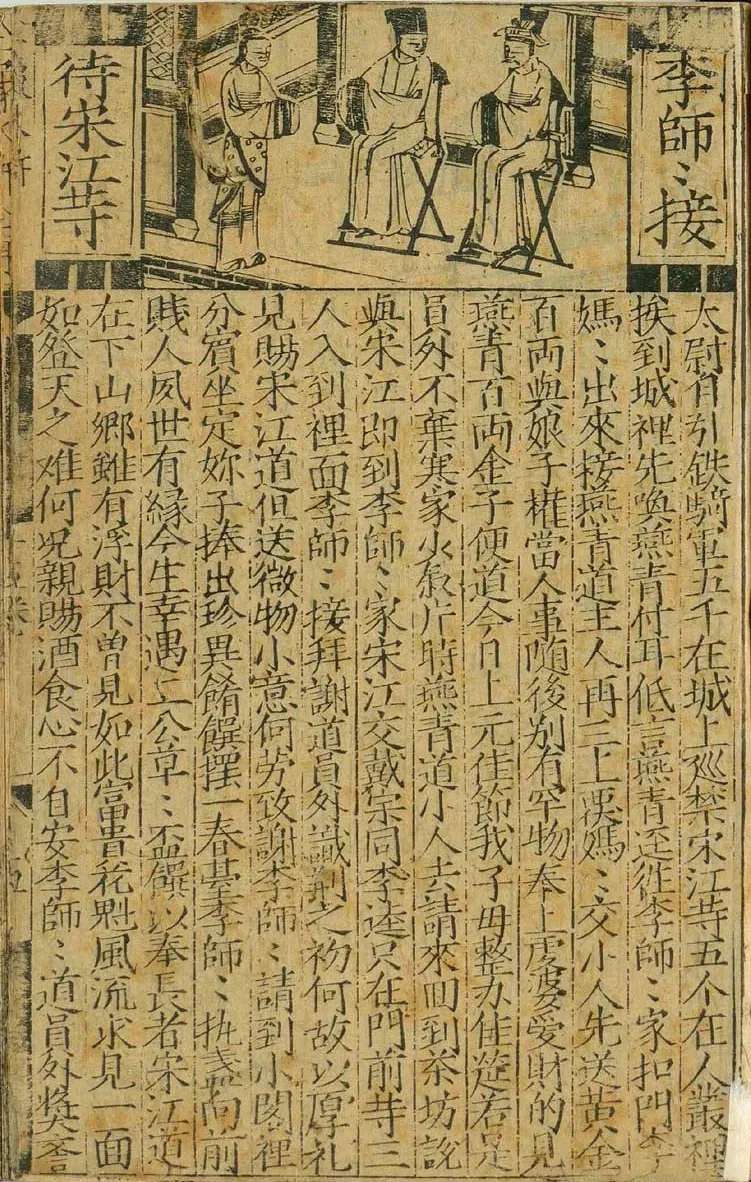 李師〻接
待宋江䒭
太尉自引鉄騎軍五千在城上巡禁宋江䒭五个在人叢裡
挨到城裡先喚燕青付耳低言燕青逕往李師〻家扣門李
媽〻出來接燕青道主人再三上覆媽〻交小人先送黃金
百両與娘子權當人事随後别有罕物奉上虔婆愛財的見
燕青百両金子便道今日上元佳節我子母整办佳筵若是
員外不棄寒家少叙片時燕青道小人去請來回到茶坊說
與宋江即到李師〻家宋江交戴宗同李逵只在門前䒭三
人入到裡面李師〻接拜謝道員外識荆之初何故以厚礼
見賜宋江道但送微物小意何劳致謝李師〻請到小閣裡
分賓坐定妳子捧出珍異餚饌擺一春䑓李師〻执盞向前
賤人夙世有緣今生幸遇二公草〻盃饌以奉長者宋江道
在下山鄉雖有浮財不曽見如此富貴花魁風流求見一面
如登天之难何况親賜酒食心不自安李師〻道員外奬譽